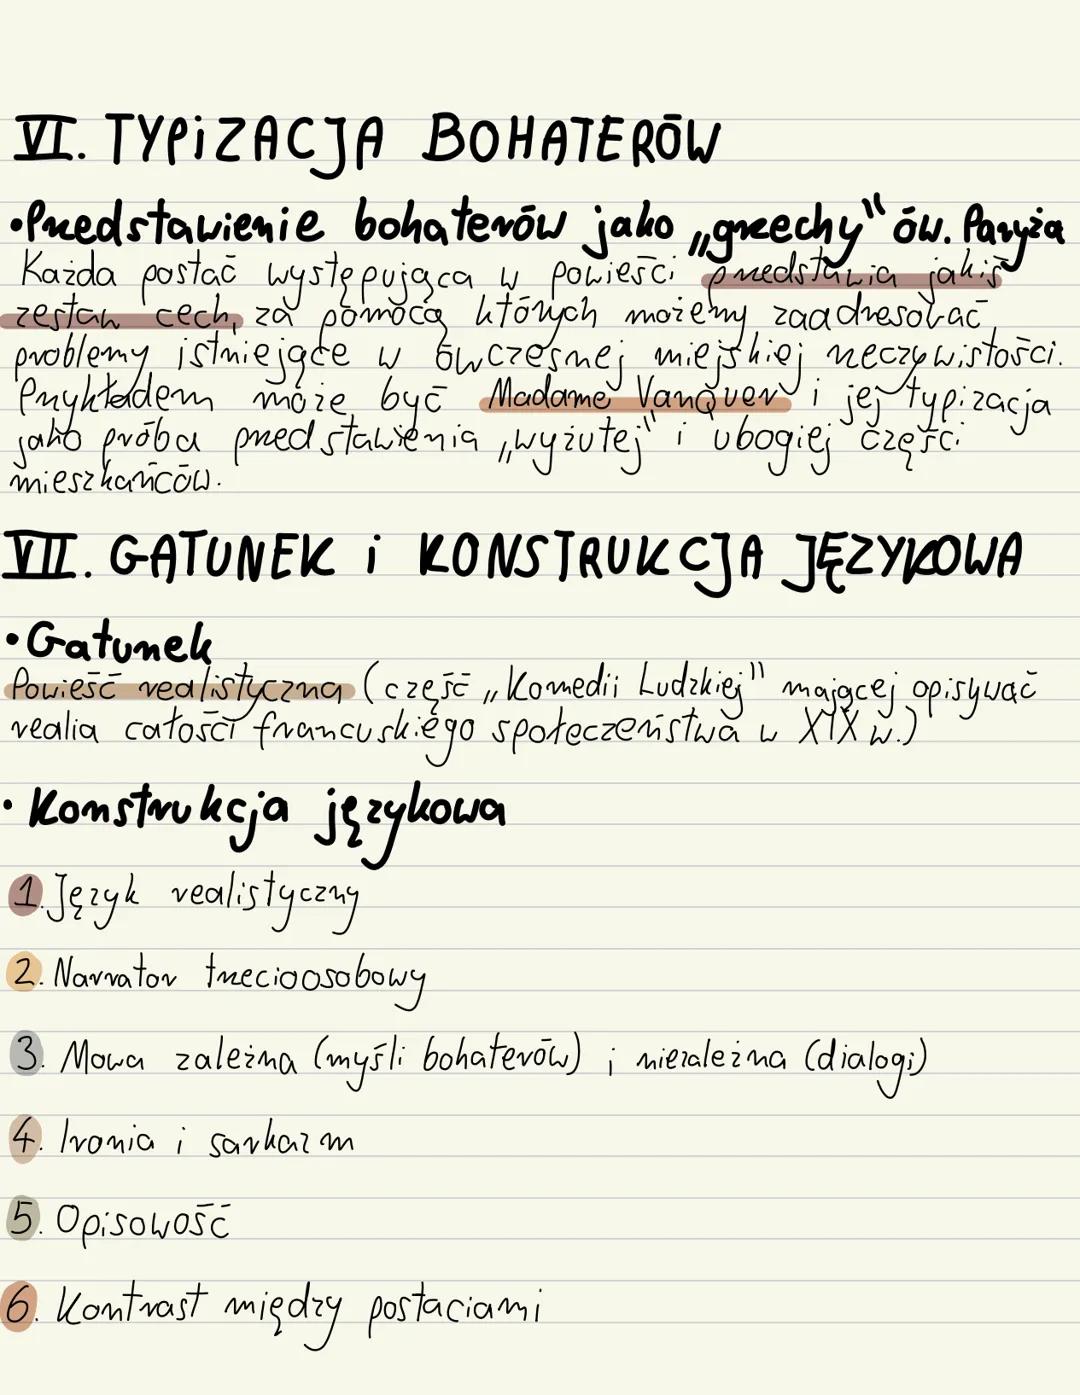 VI. TYPiZACJA BOHATERÓW
•Przedstawienie bohaterów jako „grzechy" ów. Paryża
Każda postać występująca w powieści przedstawia jakiś
zestaw cech, za pomocą których możemy zaadresować
problemy istniejące w ówczesnej miejskiej rzeczywistości.
Przykładem może być Madame Vanquer i jej typizacja
jako próba przedstawienia „wyżutej" i ubogiej części
mieszkańców.
VII. GATUNEK i KONSTRUKCJA JĘZYKOWA
•Gatunek
Powieść realistyczna (część „Komedii Ludzkiej" mającej opisywać
realia całości francuskiego społeczeństwa w XIX w.)
• Konstrukcja językowa
1. Język realistyczny
2. Narrator trzecioosobowy
3. Mowa zależna (myśli bohaterów) i niezależna (dialogi)
4. Ironia i sarkazm
5. Opisowość
6. Kontrast między postaciami